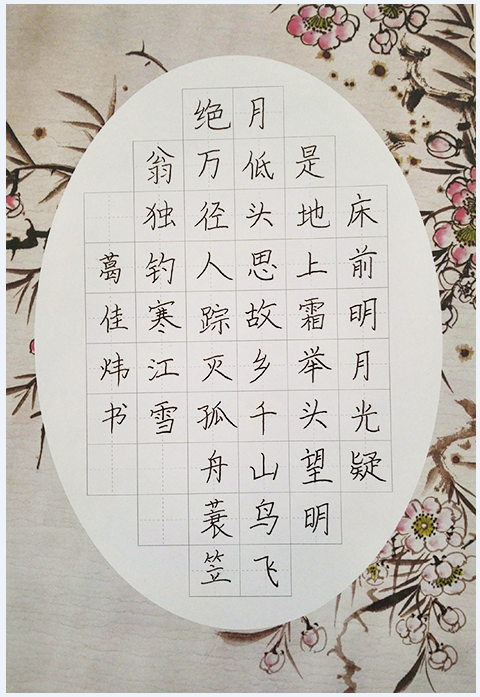 床前明月光疑
是地上霜举头望明
月低头思故乡千山鸟飞
绝万径人踪灭孤舟蓑笠
翁独钓寒江雪
葛佳炜书